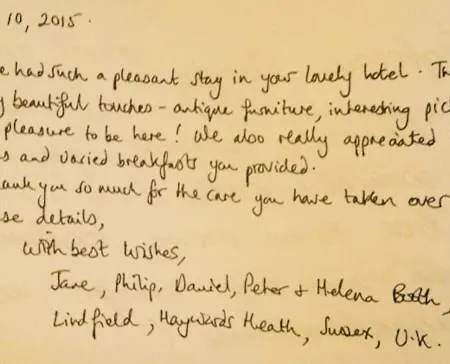 10, 2015.
e had such a pleasant stay in your lovely hotel. Th
y beautiful touches - antique furniture, interesting pic
pleasure to be here! We also really appreciated
s and varied breakfasts you provided.
ank you so much for the care you have taken over
se details,
With best wishes,
Jane, Philip, Daniel, Peter & Helena Booth,
Lindfield, Haywards Heath, Sussex, U.K.